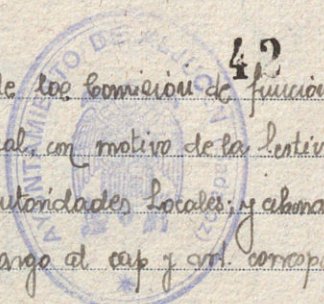 42
de los Comisión de funcion
al, con motivo de la festiv
utoridades Locales; y abona
argo al cap y art. corresp
AYUNTAMIENTO DE (Badajoz)